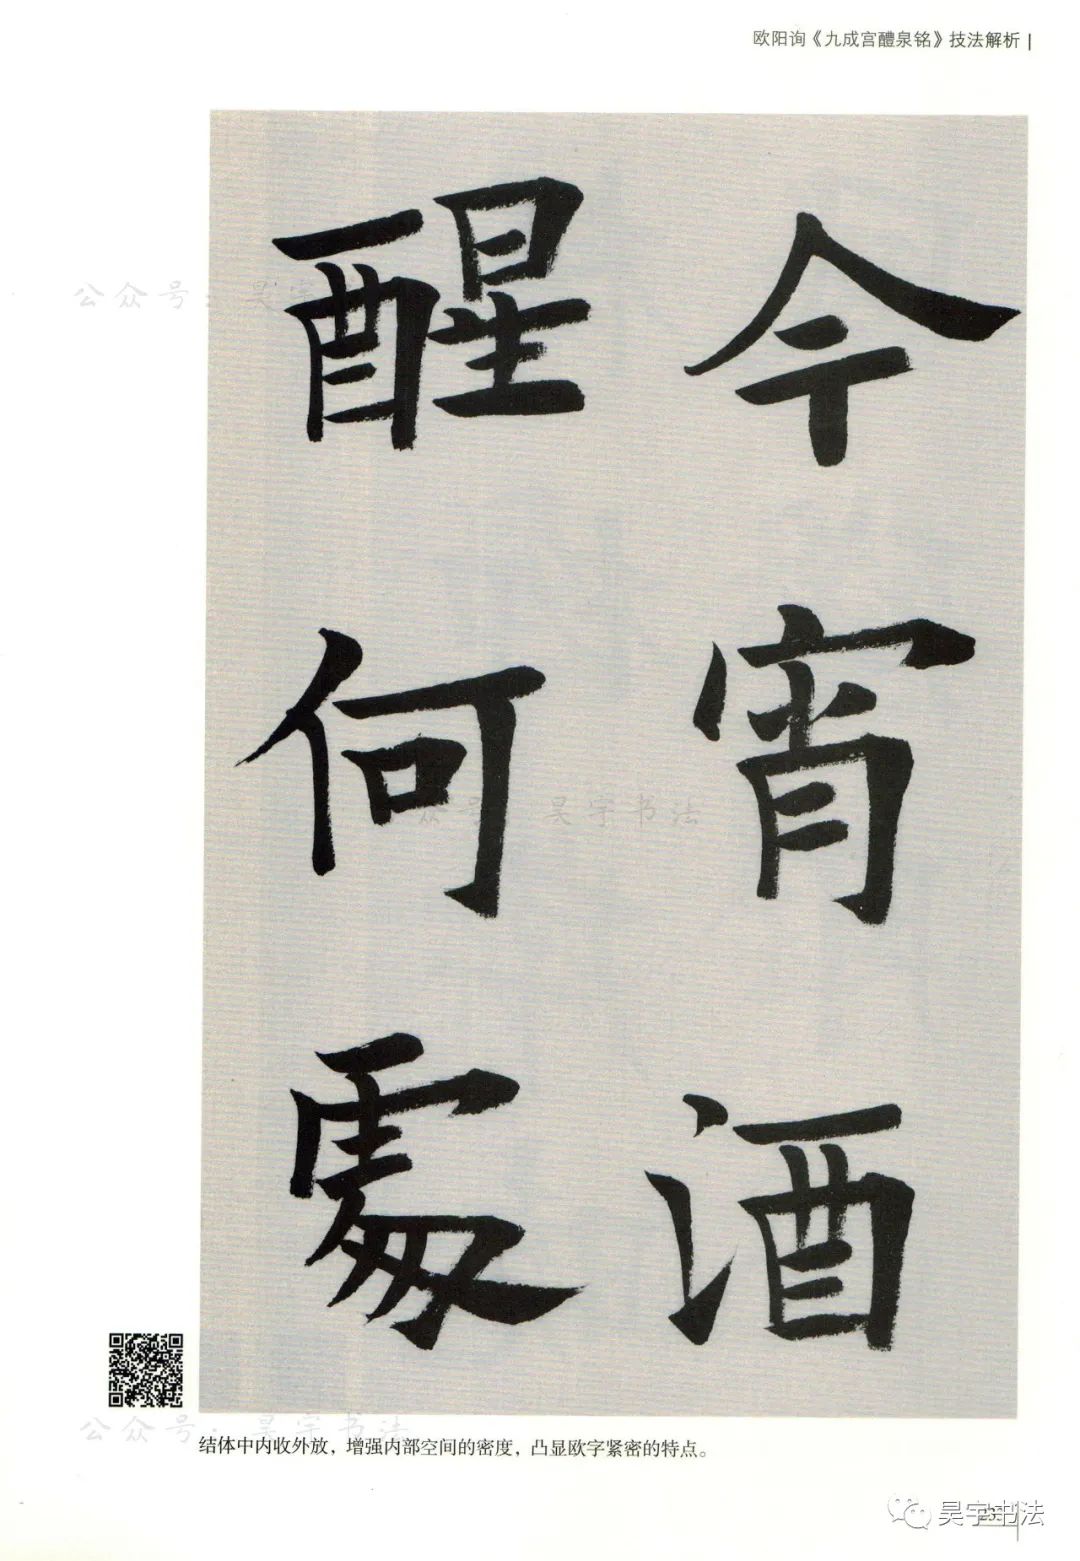 欧阳询《九成宫醴泉铭》技法解析
今宵酒
醒何處
公众号：昊宇
公众号 昊宇书法
公众号：昊宇书法
结体中内收外放，增强内部空间的密度，凸显欧字紧密的特点。
昊宇书法